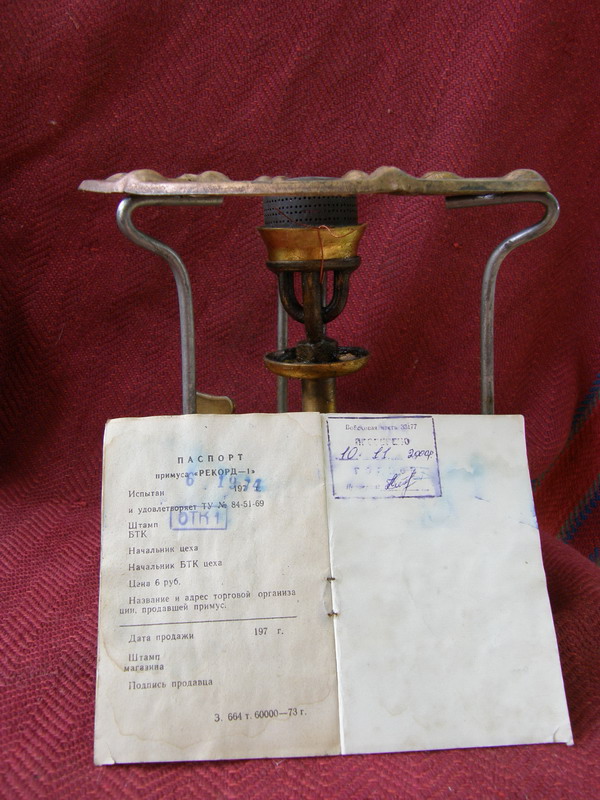 ПАСПОРТ
примуса «РЕКОРД—1»
6. 1974
Испытан 197
и удовлетворяет ТУ № 84-51-69
Штамп БТК1
БТК
Начальник цеха
Начальник БТК цеха
Цена 6 руб.
Название и адрес торговой организа
ции, продавшей примус.
Дата продажи 197 г.
Штамп
магазина
Подпись продавца
З. 664 т. 60000—73 г.
Войсковая часть
ПРОВЕРЕНО
10. 11 2000г